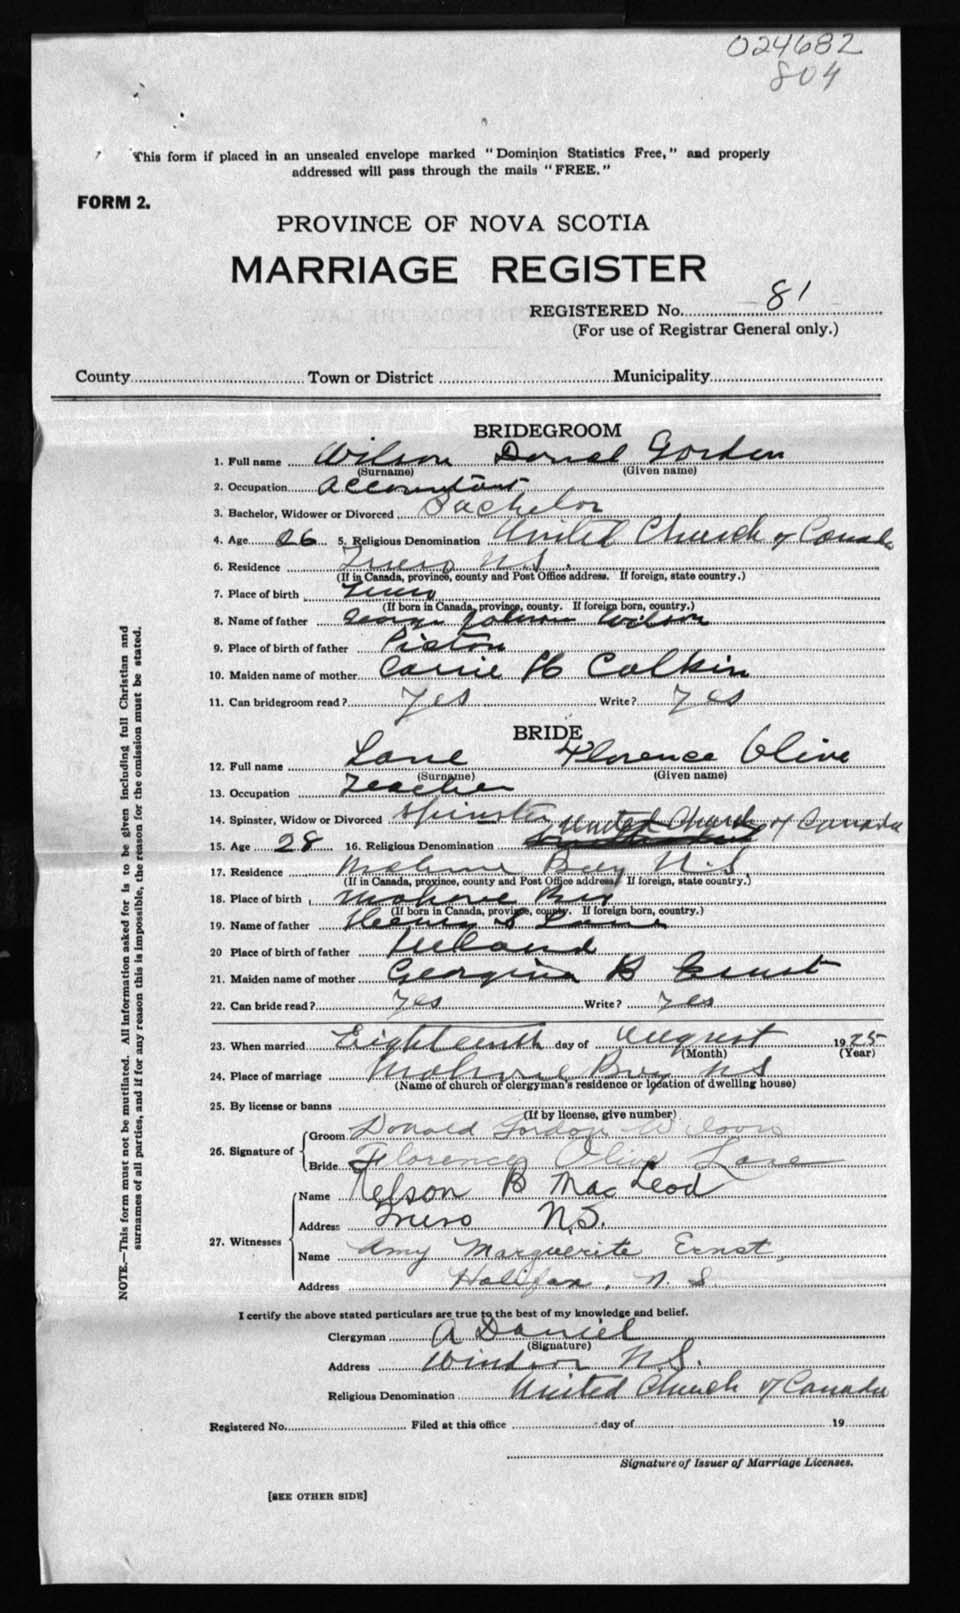 024682
804
This form if placed in an unsealed envelope marked "Dominion Statistics Free," and properly
addressed will pass through the mails "FREE."
FORM 2.
PROVINCE OF NOVA SCOTIA
MARRIAGE REGISTER
REGISTERED No. 81
(For use of Registrar General only.)
County Town or District Municipality
BRIDEGROOM
1. Full name Wilson Donald Gordon
(Surname) (Given name)
2. Occupation Accountant
3. Bachelor, Widower or Divorced Bachelor
4. Age 26 5. Religious Denomination United Church of Canada
6. Residence Truro N.S.
(If in Canada, province, county and Post Office address. If foreign, state country.)
7. Place of birth Truro
(If born in Canada, province, county. If foreign born, country.)
8. Name of father George Wilson
9. Place of birth of father Pictou
10. Maiden name of mother Carrie H Calkin
11. Can bridegroom read? Yes Write? Yes
BRIDE
12. Full name Lane Florence Olive
(Surname) (Given name)
13. Occupation Teacher
14. Spinster, Widow or Divorced Spinster
15. Age 28 16. Religious Denomination United Church of Canada
17. Residence Mahone Bay N.S.
(If in Canada, province, county and Post Office address. If foreign, state country.)
18. Place of birth Mahone Bay
(If born in Canada, province, county. If foreign born, country.)
19. Name of father Henry S Lane
20 Place of birth of father Ireland
21. Maiden name of mother Georgina B Ernst
22. Can bride read? Yes Write? Yes
23. When married Eighteenth day of August 1925
(Month) (Year)
24. Place of marriage Mahone Bay NS
(Name of church or clergyman's residence or location of dwelling house)
25. By license or banns
(If by license, give number)
26. Signature of Groom Donald Gordon Wilson
Bride Florence Olive Lane
27. Witnesses Name Nelson B MacLeod
Address Truro N.S.
Name Amy Marguerite Ernst,
Address Halifax, N.S.
I certify the above stated particulars are true to the best of my knowledge and belief.
Clergyman A Daniel
(Signature)
Address Windsor N.S.
Religious Denomination United Church of Canada
Registered No. Filed at this office day of 19
Signature of Issuer of Marriage Licenses.
[SEE OTHER SIDE]
NOTE.—This form must not be mutilated. All information asked for is to be given including full Christian and
surnames of all parties, and if for any reason this is impossible, the reason for the omission must be stated.